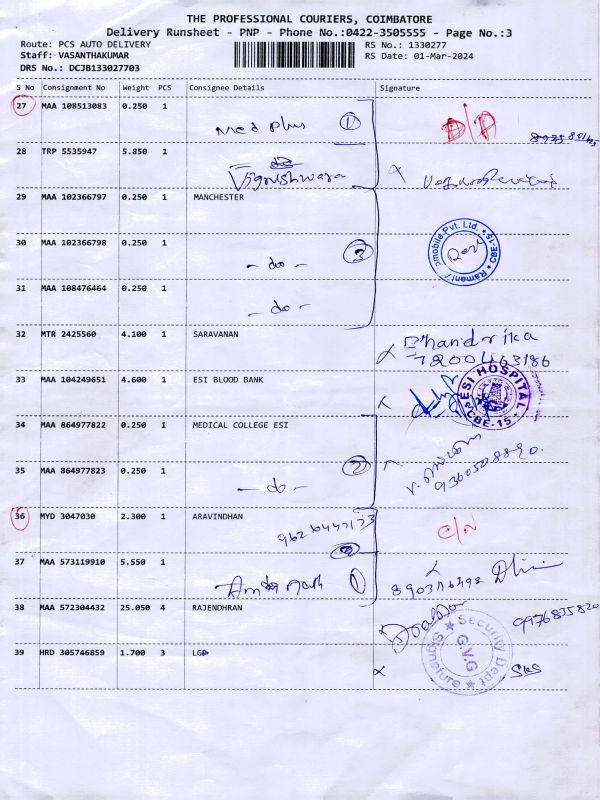 THE PROFESSIONAL COURIERS, COIMBATORE
Delivery Runsheet - PNP - Phone No.:0422-3505555 - Page No.:3
Route: PCS AUTO DELIVERY RS No.: 1330277
Staff: VASANTHAKUMAR RS Date: 01-Mar-2024
DRS No.: DCJB133027703
S No Consignment No Weight PCS Consignee Details Signature
27 MAA 108513083 0.250 1
Med plus 1 D/A
28 TRP 5535947 5.850 1
Vigneshwara
29 MAA 102366797 0.250 1 MANCHESTER
30 MAA 102366798 0.250 1
- do - 3
mobile Pvt. Ltd. * CBE-15 * Ramani
31 MAA 108476464 0.250 1
- do -
32 MTR 2425560 4.100 1 SARAVANAN
Chandrika
7200463186
33 MAA 104249651 4.600 1 ESI BLOOD BANK
ESI HOSPITAL
CBE-15
34 MAA 864977822 0.250 1 MEDICAL COLLEGE ESI
35 MAA 864977823 0.250 1
- do - 2
36 MYD 3047030 2.300 1 ARAVINDHAN
C/N
37 MAA 573119910 5.550 1
1
38 MAA 572304432 25.050 4 RAJENDHRAN
9976835820
39 HRD 305746859 1.700 3 LGP
Security Dept * Signature *
G.V.G
SKS